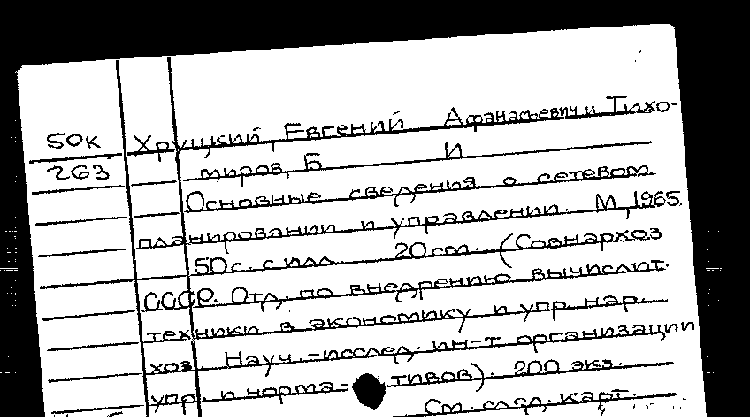 50к Хруцкий, Евгений Афанасьевич и Тихо-
263 миров, Б И
Основные сведения о сетевом
планировании и управлении. М, 1965.
50с. с илл. 20 см. (Совнархоз
СССР. Отд. по внедрению вычислит.
техники в экономику и упр. нар.
хоз. Науч.-исслед. ин-т организации
упр. и норма- тивов). 200 экз.
См. след. карт.